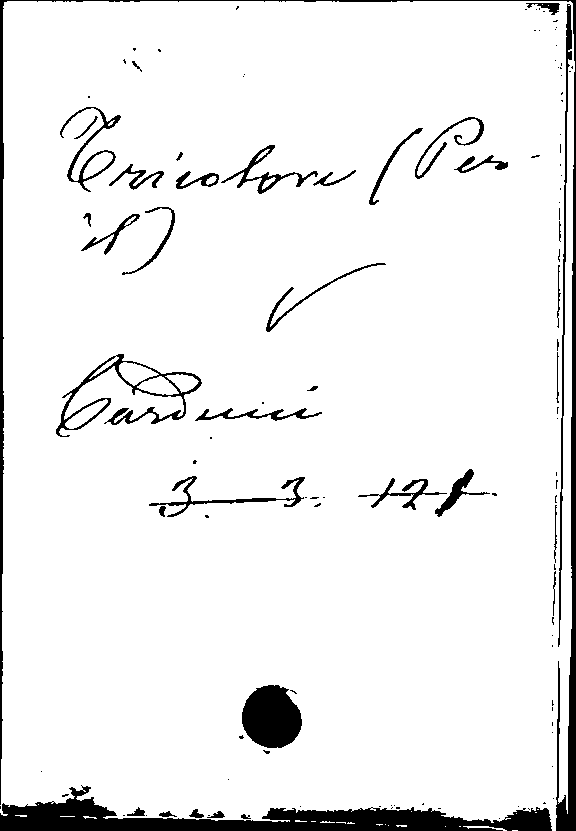 Tricolore (Per
il)
Carducci
3. 3. 121